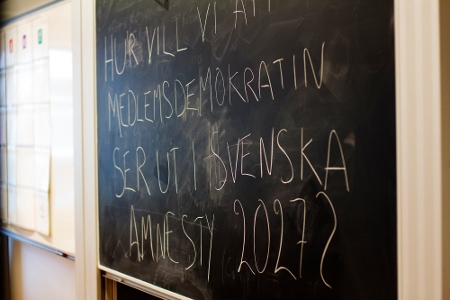 HUR VILL VI ATT
MEDLEMSDEMOKRATIN
SER UT I SVENSKA
AMNESTY 2027?